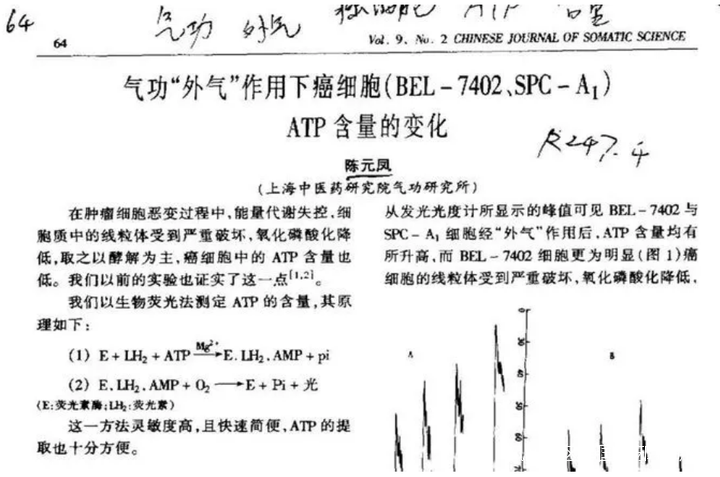 64
气功 外气 癌细胞 ATP 含量
64
Vol. 9, No. 2 CHINESE JOURNAL OF SOMATIC SCIENCE
气功“外气”作用下癌细胞(BEL-7402、SPC-A₁)
ATP 含量的变化
R247.4
陈元凤
(上海中医药研究院气功研究所)
在肿瘤细胞恶变过程中,能量代谢失控,细
胞质中的线粒体受到严重破坏,氧化磷酸化降
低,取之以酵解为主,癌细胞中的 ATP 含量也
低。我们以前的实验也证实了这一点[1,2]。
我们以生物荧光法测定 ATP 的含量,其原
理如下:
(1) E+LH₂+ATP —Mg²⁺→ E.LH₂.AMP+pi
(2) E.LH₂.AMP+O₂ ⟶ E+Pi+光
(E:荧光素酶;LH₂:荧光素)
这一方法灵敏度高,且快速简便,ATP 的提
取也十分方便。
从发光光度计所显示的峰值可见 BEL-7402 与
SPC-A₁ 细胞经“外气”作用后,ATP 含量均有
所升高,而 BEL-7402 细胞更为明显(图 1)癌
细胞的线粒体受到严重破坏,氧化磷酸化降低,
A
B